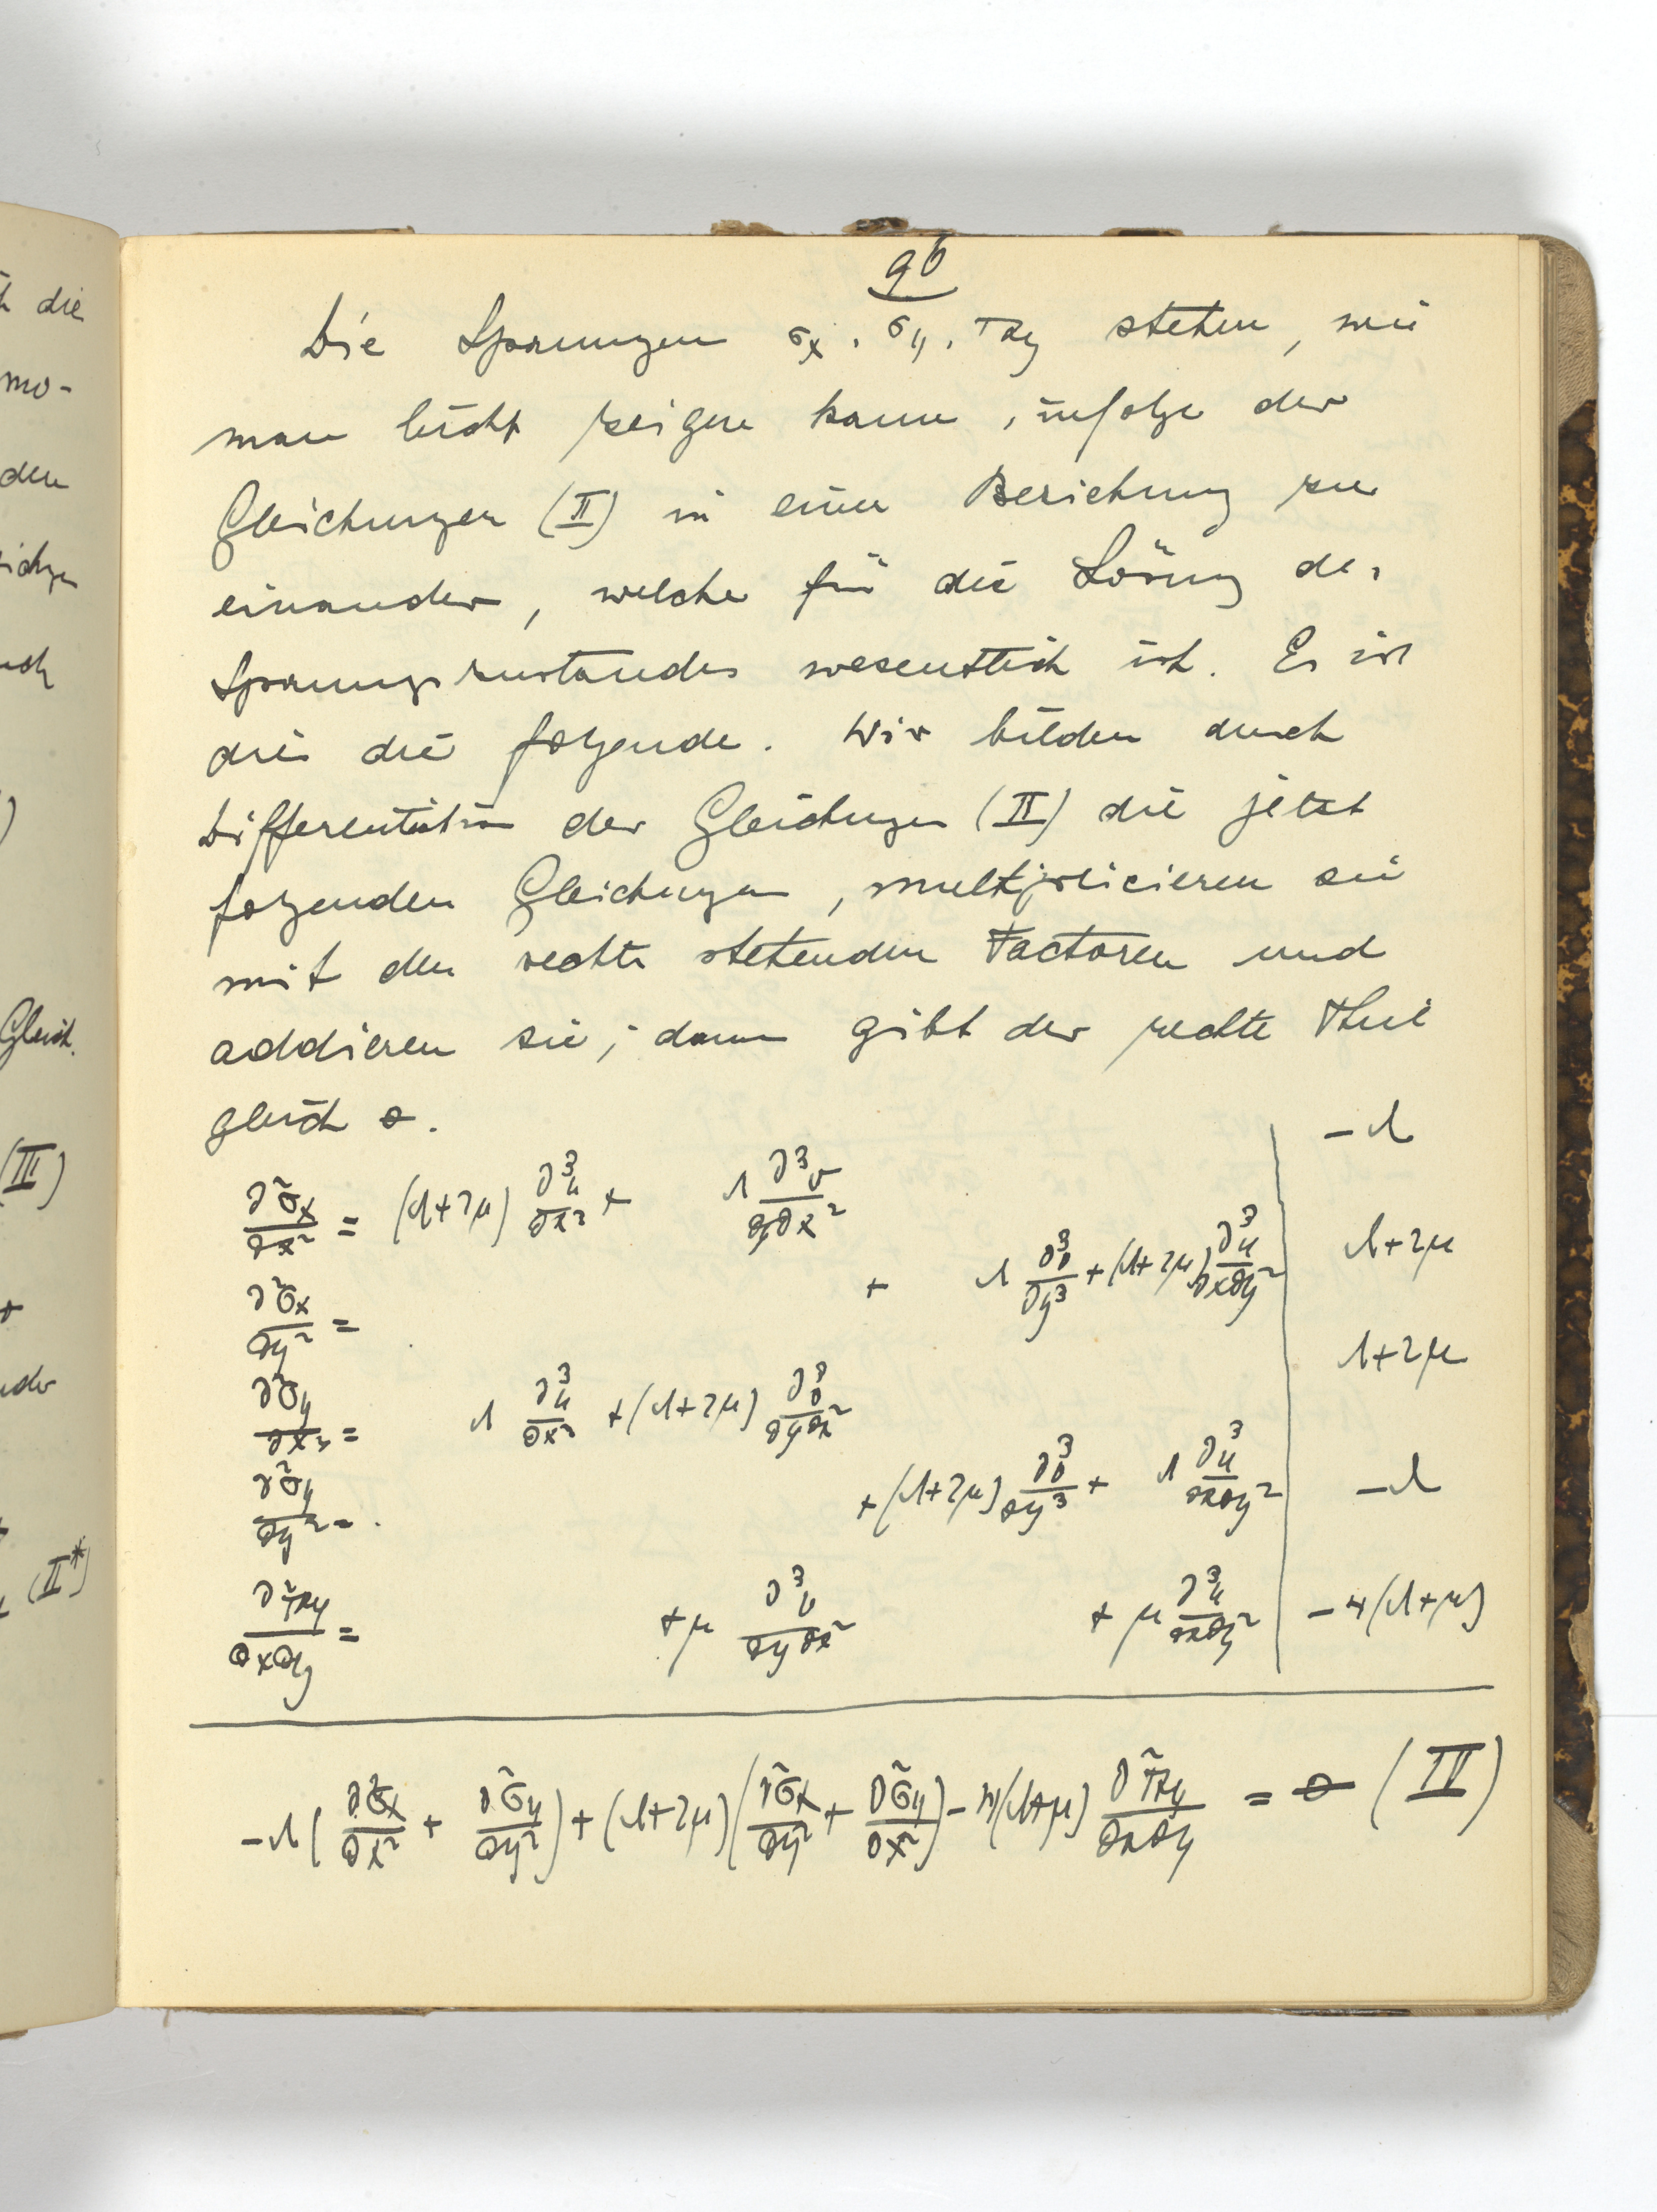 h die
mo-
den
Gleich.
(III)
(II*)
96
Die Spannungen σx, σy, τxy stehen, wie
man leicht zeigen kann, infolge der
Gleichungen (II) in einer Beziehung zu
einander, welche für die Lösung des
Spannungszustandes wesentlich ist. Es ist
dies die folgende. Wir bilden durch
Differentiation der Gleichungen (II) die jetzt
folgenden Gleichungen, multiplicieren sie
mit den rechts stehenden Factoren und
addieren sie; dann gibt der rechte Theil
gleich 0.
∂²σx/∂x² = (λ+2μ) ∂³u/∂x³ + λ ∂³v/∂y∂x² | -λ
∂²σx/∂y² = + λ ∂³v/∂y³ + (λ+2μ) ∂³u/∂x∂y² | λ+2μ
∂²σy/∂x² = λ ∂³u/∂x³ + (λ+2μ) ∂³v/∂y∂x² | λ+2μ
∂²σy/∂y² = + (λ+2μ) ∂³v/∂y³ + λ ∂³u/∂x∂y² | -λ
∂²τxy/∂x∂y = + μ ∂³v/∂y∂x² + μ ∂³u/∂x∂y² | -4(λ+μ)
-λ(∂²σx/∂x² + ∂²σy/∂y²) + (λ+2μ)(∂²σx/∂y² + ∂²σy/∂x²) - 4(λ+μ) ∂²τxy/∂x∂y = 0 (IV)